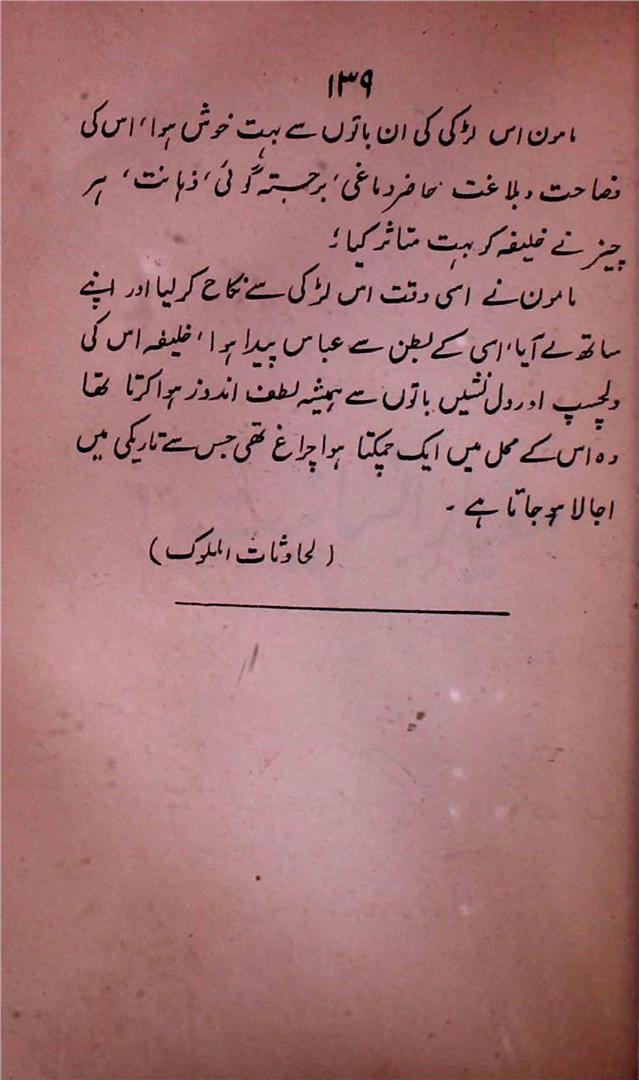 ۱۳۹
مامون اس لڑکی کی ان باتوں سے بہت خوش ہوا، اس کی
فصاحت و بلاغت حاضر دماغی، برجستہ گوئی، ذہانت، ہر
چیز نے خلیفہ کو بہت متاثر کیا؛
مامون نے اسی وقت اس لڑکی سے نکاح کر لیا اور اپنے
ساتھ لے آیا، اسی کے بطن سے عباس پیدا ہوا، خلیفہ اس کی
دلچسپ اور دل نشیں باتوں سے ہمیشہ لطف اندوز ہوا کرتا تھا
وہ اس کے محل میں ایک چمکتا ہوا چراغ تھی جس سے تاریکی میں
اجالا ہو جاتا ہے ۔
(لحادثات الملوک)